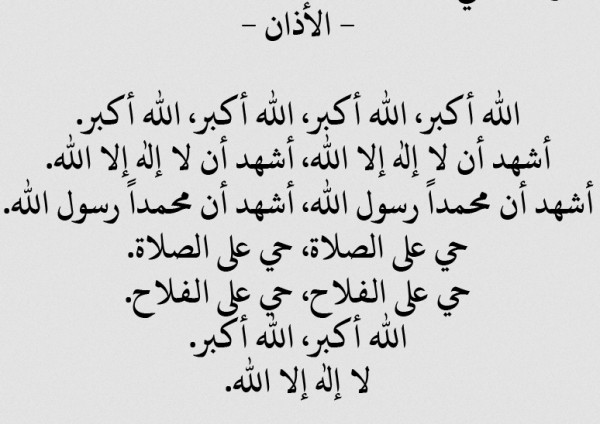 – الأذان –
الله أكبر، الله أكبر، الله أكبر، الله أكبر.
أشهد أن لا إلٰه إلا الله، أشهد أن لا إلٰه إلا الله.
أشهد أن محمداً رسول الله، أشهد أن محمداً رسول الله.
حي على الصلاة، حي على الصلاة.
حي على الفلاح، حي على الفلاح.
الله أكبر، الله أكبر.
لا إلٰه إلا الله.